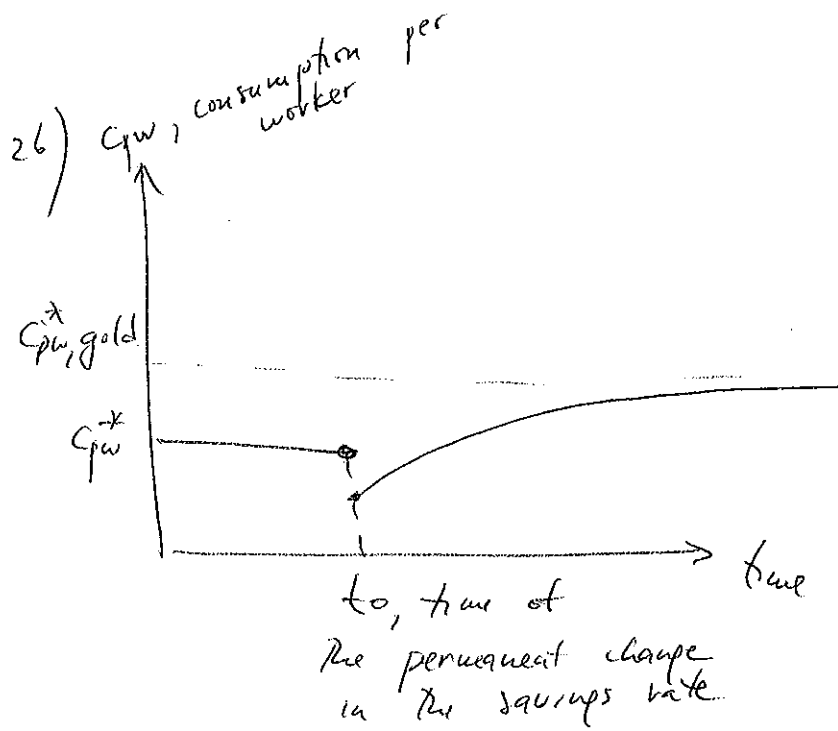 26) Cpw, consumption per
worker
C*pw, gold
C*pw
time
to, time of
The permanent change
in the savings rate